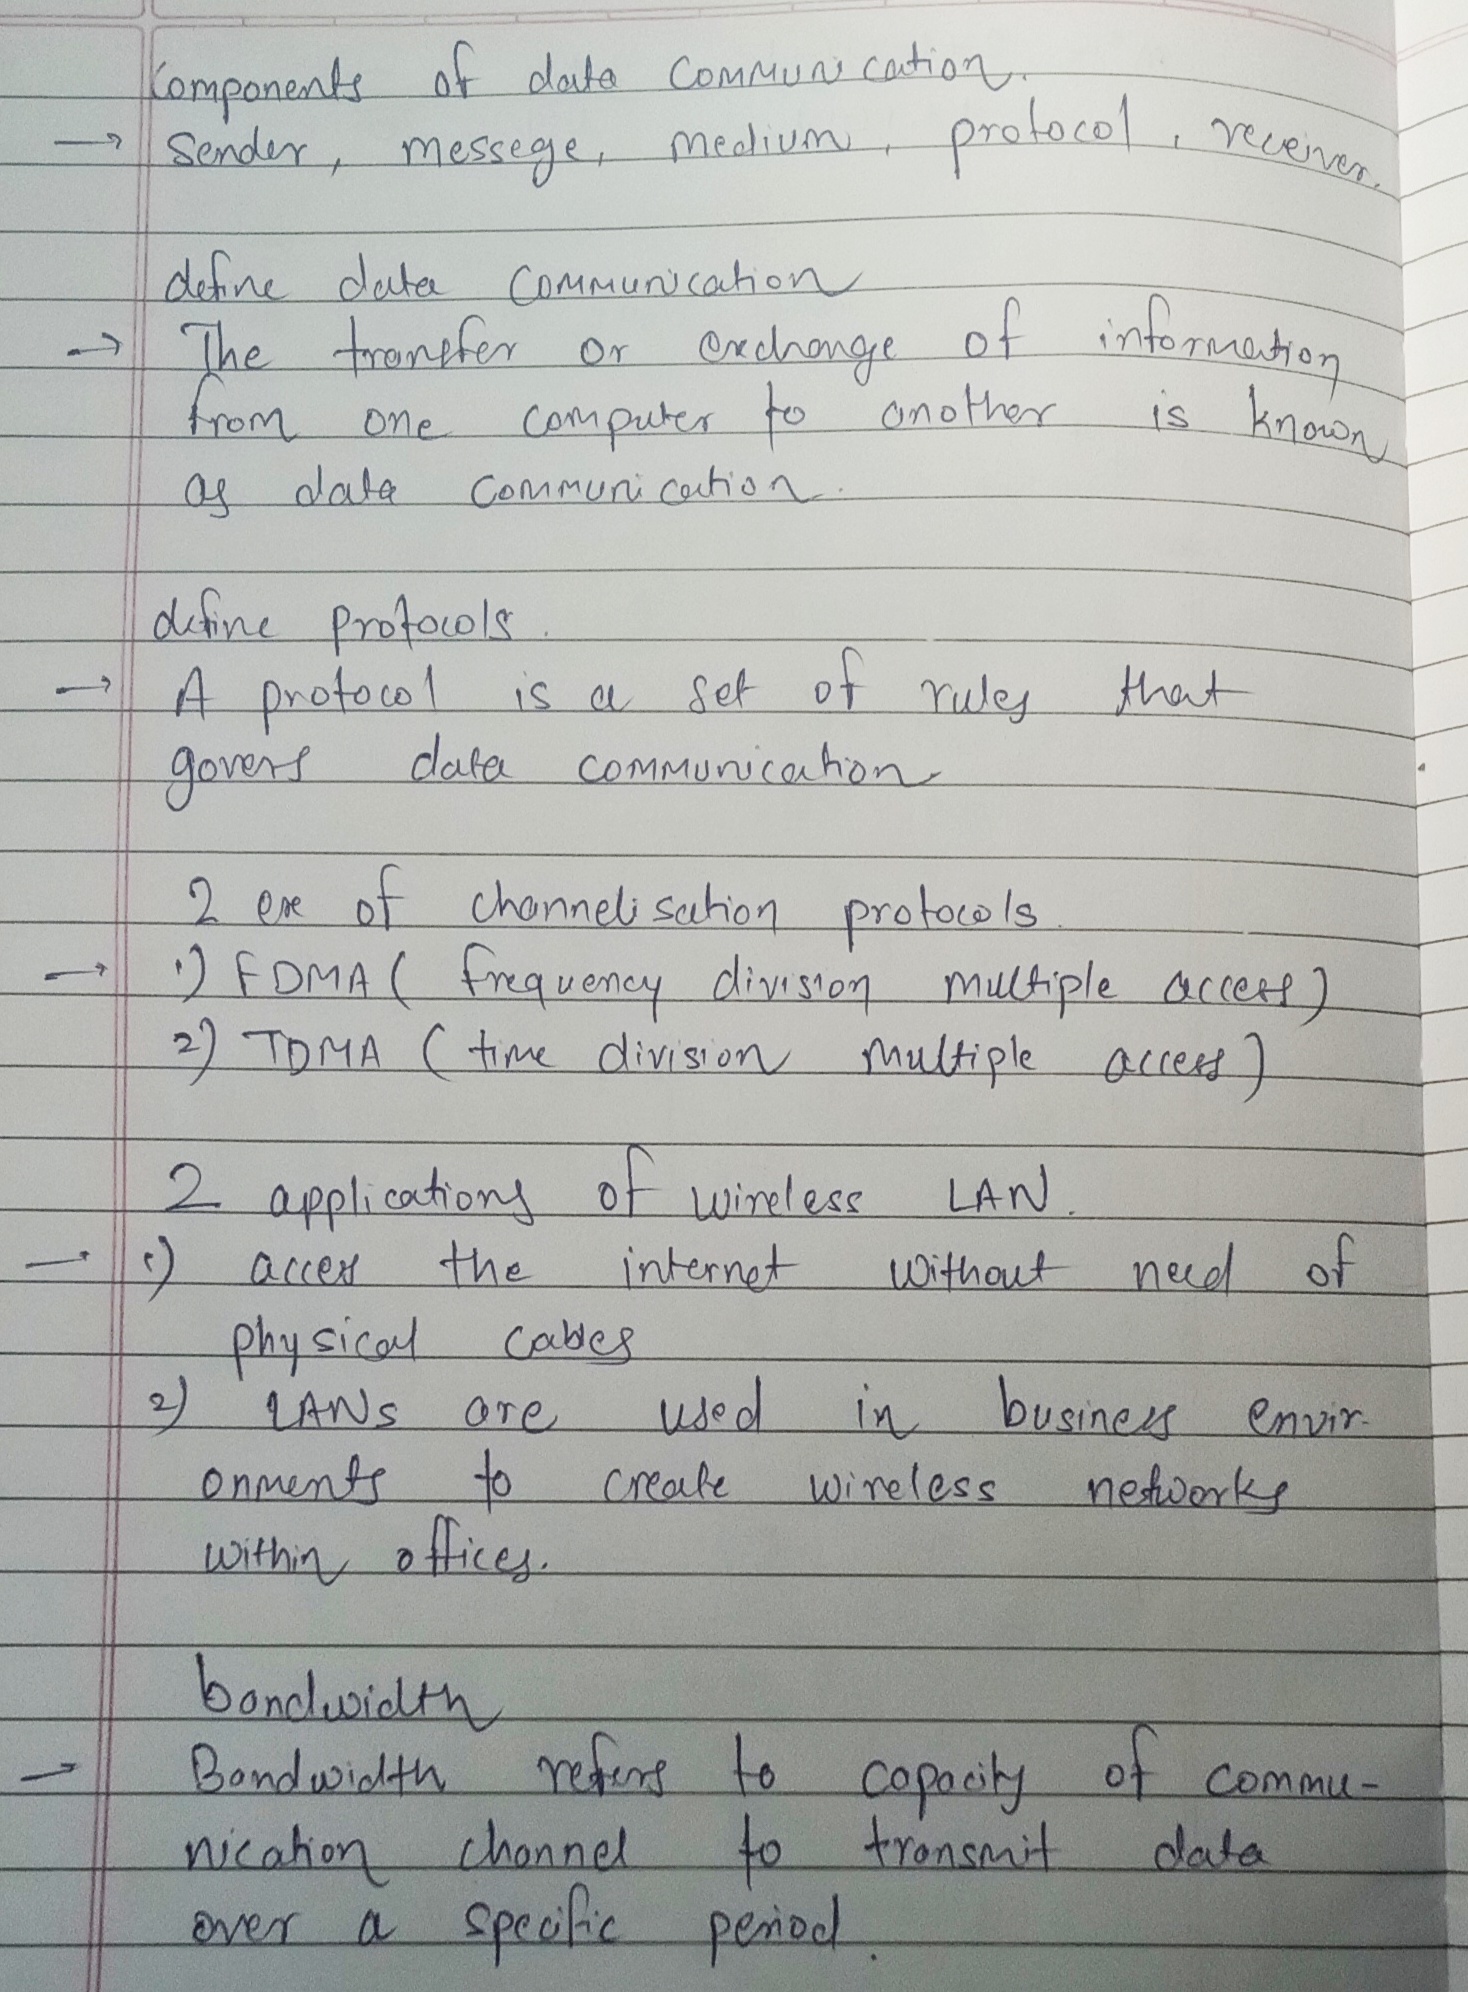 Components of data communication.
→ Sender, messege, medium, protocol, receiver.
define data communication
→ The transfer or exchange of information
from one computer to another is known
as data communication.
define protocols.
→ A protocol is a set of rules that
govers data communication
2 exe of channelisation protocols.
→ 1) FDMA ( frequency division multiple access)
2) TDMA ( time division multiple access)
2 applications of wireless LAN.
→ 1) access the internet without need of
physical cables
2) LANs are used in business envir-
onments to create wireless networks
within offices.
bandwidth
→ Bandwidth refers to capacity of commu-
nication channel to transmit data
over a specific period.